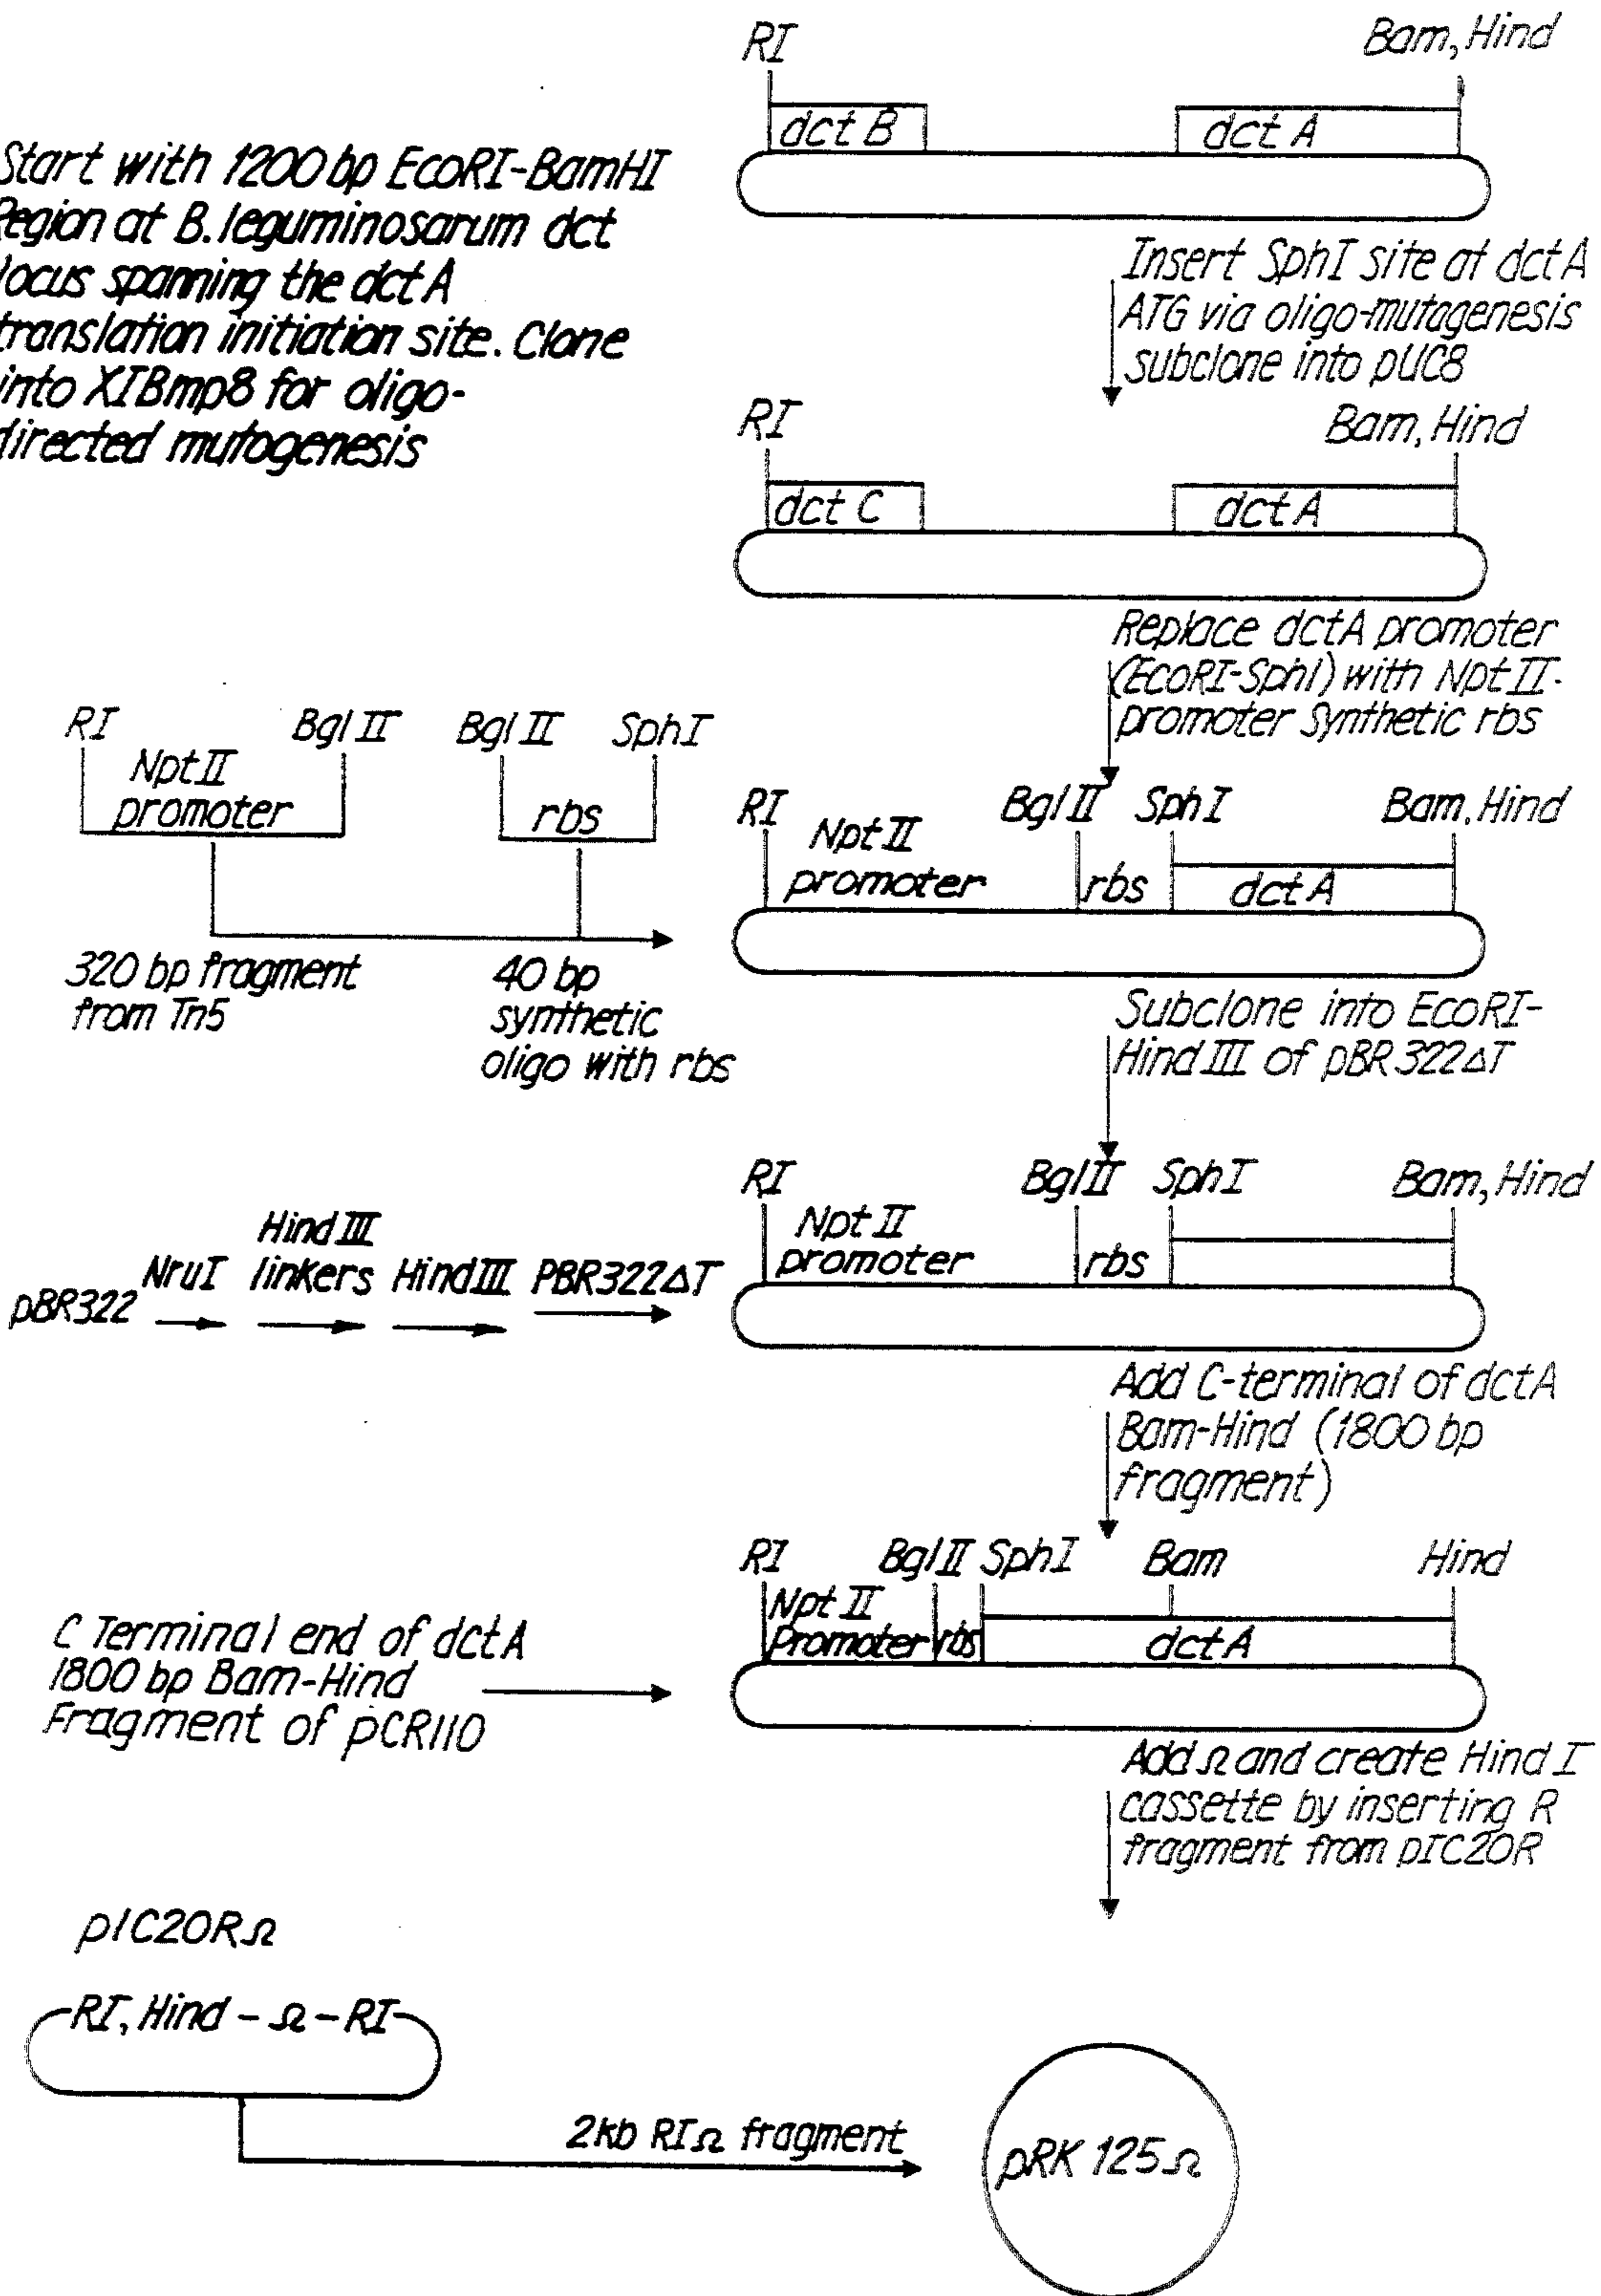 RI
Bam, Hind
dct B
dct A
Start with 1200 bp EcoRI-BamHI
Region at B. leguminosarum dct
locus spanning the dct A
translation initiation site. Clone
into XIBmp8 for oligo-
directed mutogenesis
Insert SphI site at dctA
ATG via oligo-mutagenesis
subclone into pUC8
RI
Bam, Hind
dct C
dct A
Replace dctA promoter
(EcoRI-SphI) with Npt II-
promoter synthetic rbs
RI
Bgl II
Bgl II
SphI
Npt II
promoter
rbs
320 bp fragment
from Tn5
40 bp
synthetic
oligo with rbs
RI
Npt II
promoter
Bgl II
SphI
Bam, Hind
rbs
dct A
Subclone into EcoRI-
Hind III of pBR 322ΔT
RI
Bgl II
SphI
Bam, Hind
Npt II
promoter
rbs
pBR322
NruI
Hind III
linkers
Hind III
PBR322ΔT
Add C-terminal of dctA
Bam-Hind (1800 bp
fragment)
RI
Bgl II
SphI
Bam
Hind
Npt II
Promoter
rbs
dct A
C Terminal end of dctA
1800 bp Bam-Hind
Fragment of pCR110
Add Ω and create Hind I
cassette by inserting R
fragment from pIC20R
pIC20RΩ
RI, Hind - Ω - RI
2kb RIΩ fragment
pRK 125Ω